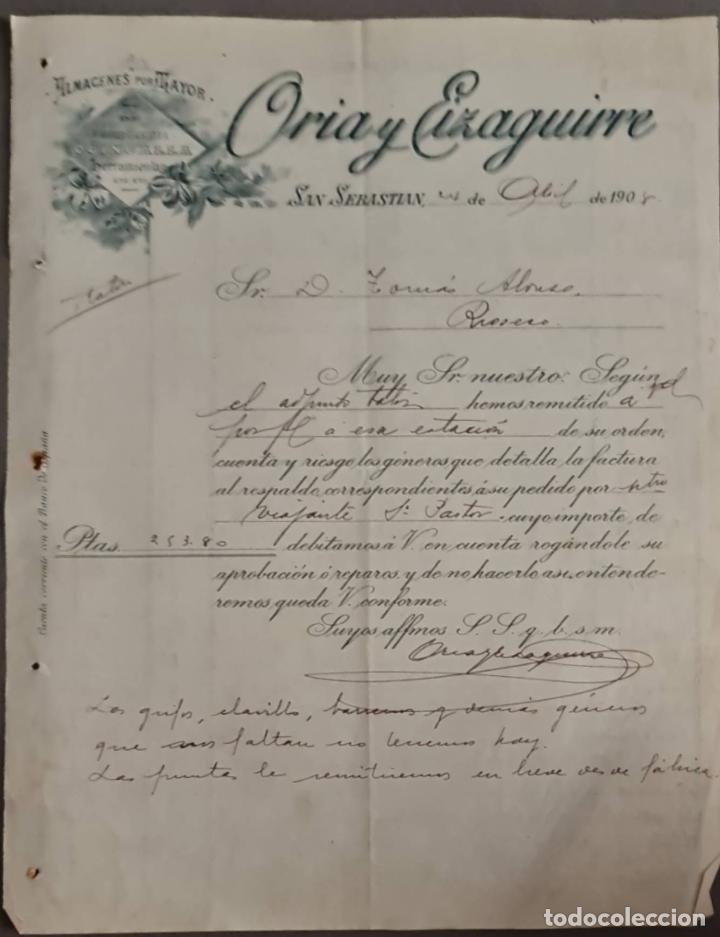 ALMACENES POR MAYOR
DE
Herramientas
ETC. ETC.
Oria y Eizaguirre
SAN SEBASTIAN, 24 de Abril de 1908
Talón
Sr. D. Tomás Alonso
Rioseco
Muy Sr. nuestro: Según
el adjunto talón hemos remitido a
por f.c. á esa estación de su orden,
cuenta y riesgo los géneros que detalla la factura
al respaldo, correspondientes á su pedido por ntro
viajante Sr. Pastor cuyo importe de
Ptas. 253.80 debitamos á V. en cuenta rogándole su
aprobación ó reparos, y de no hacerlo asi, entende-
remos queda V. conforme.
Suyos affmos. S. S. q. b. s. m.
Oria y Eizaguirre
Los grifos, clavillo, barrenos y demás géneros
que faltan no tenemos hoy.
Las puntas le remitiremos en breve desde fábrica.
Cuenta corriente con el Banco de España
todocoleccion